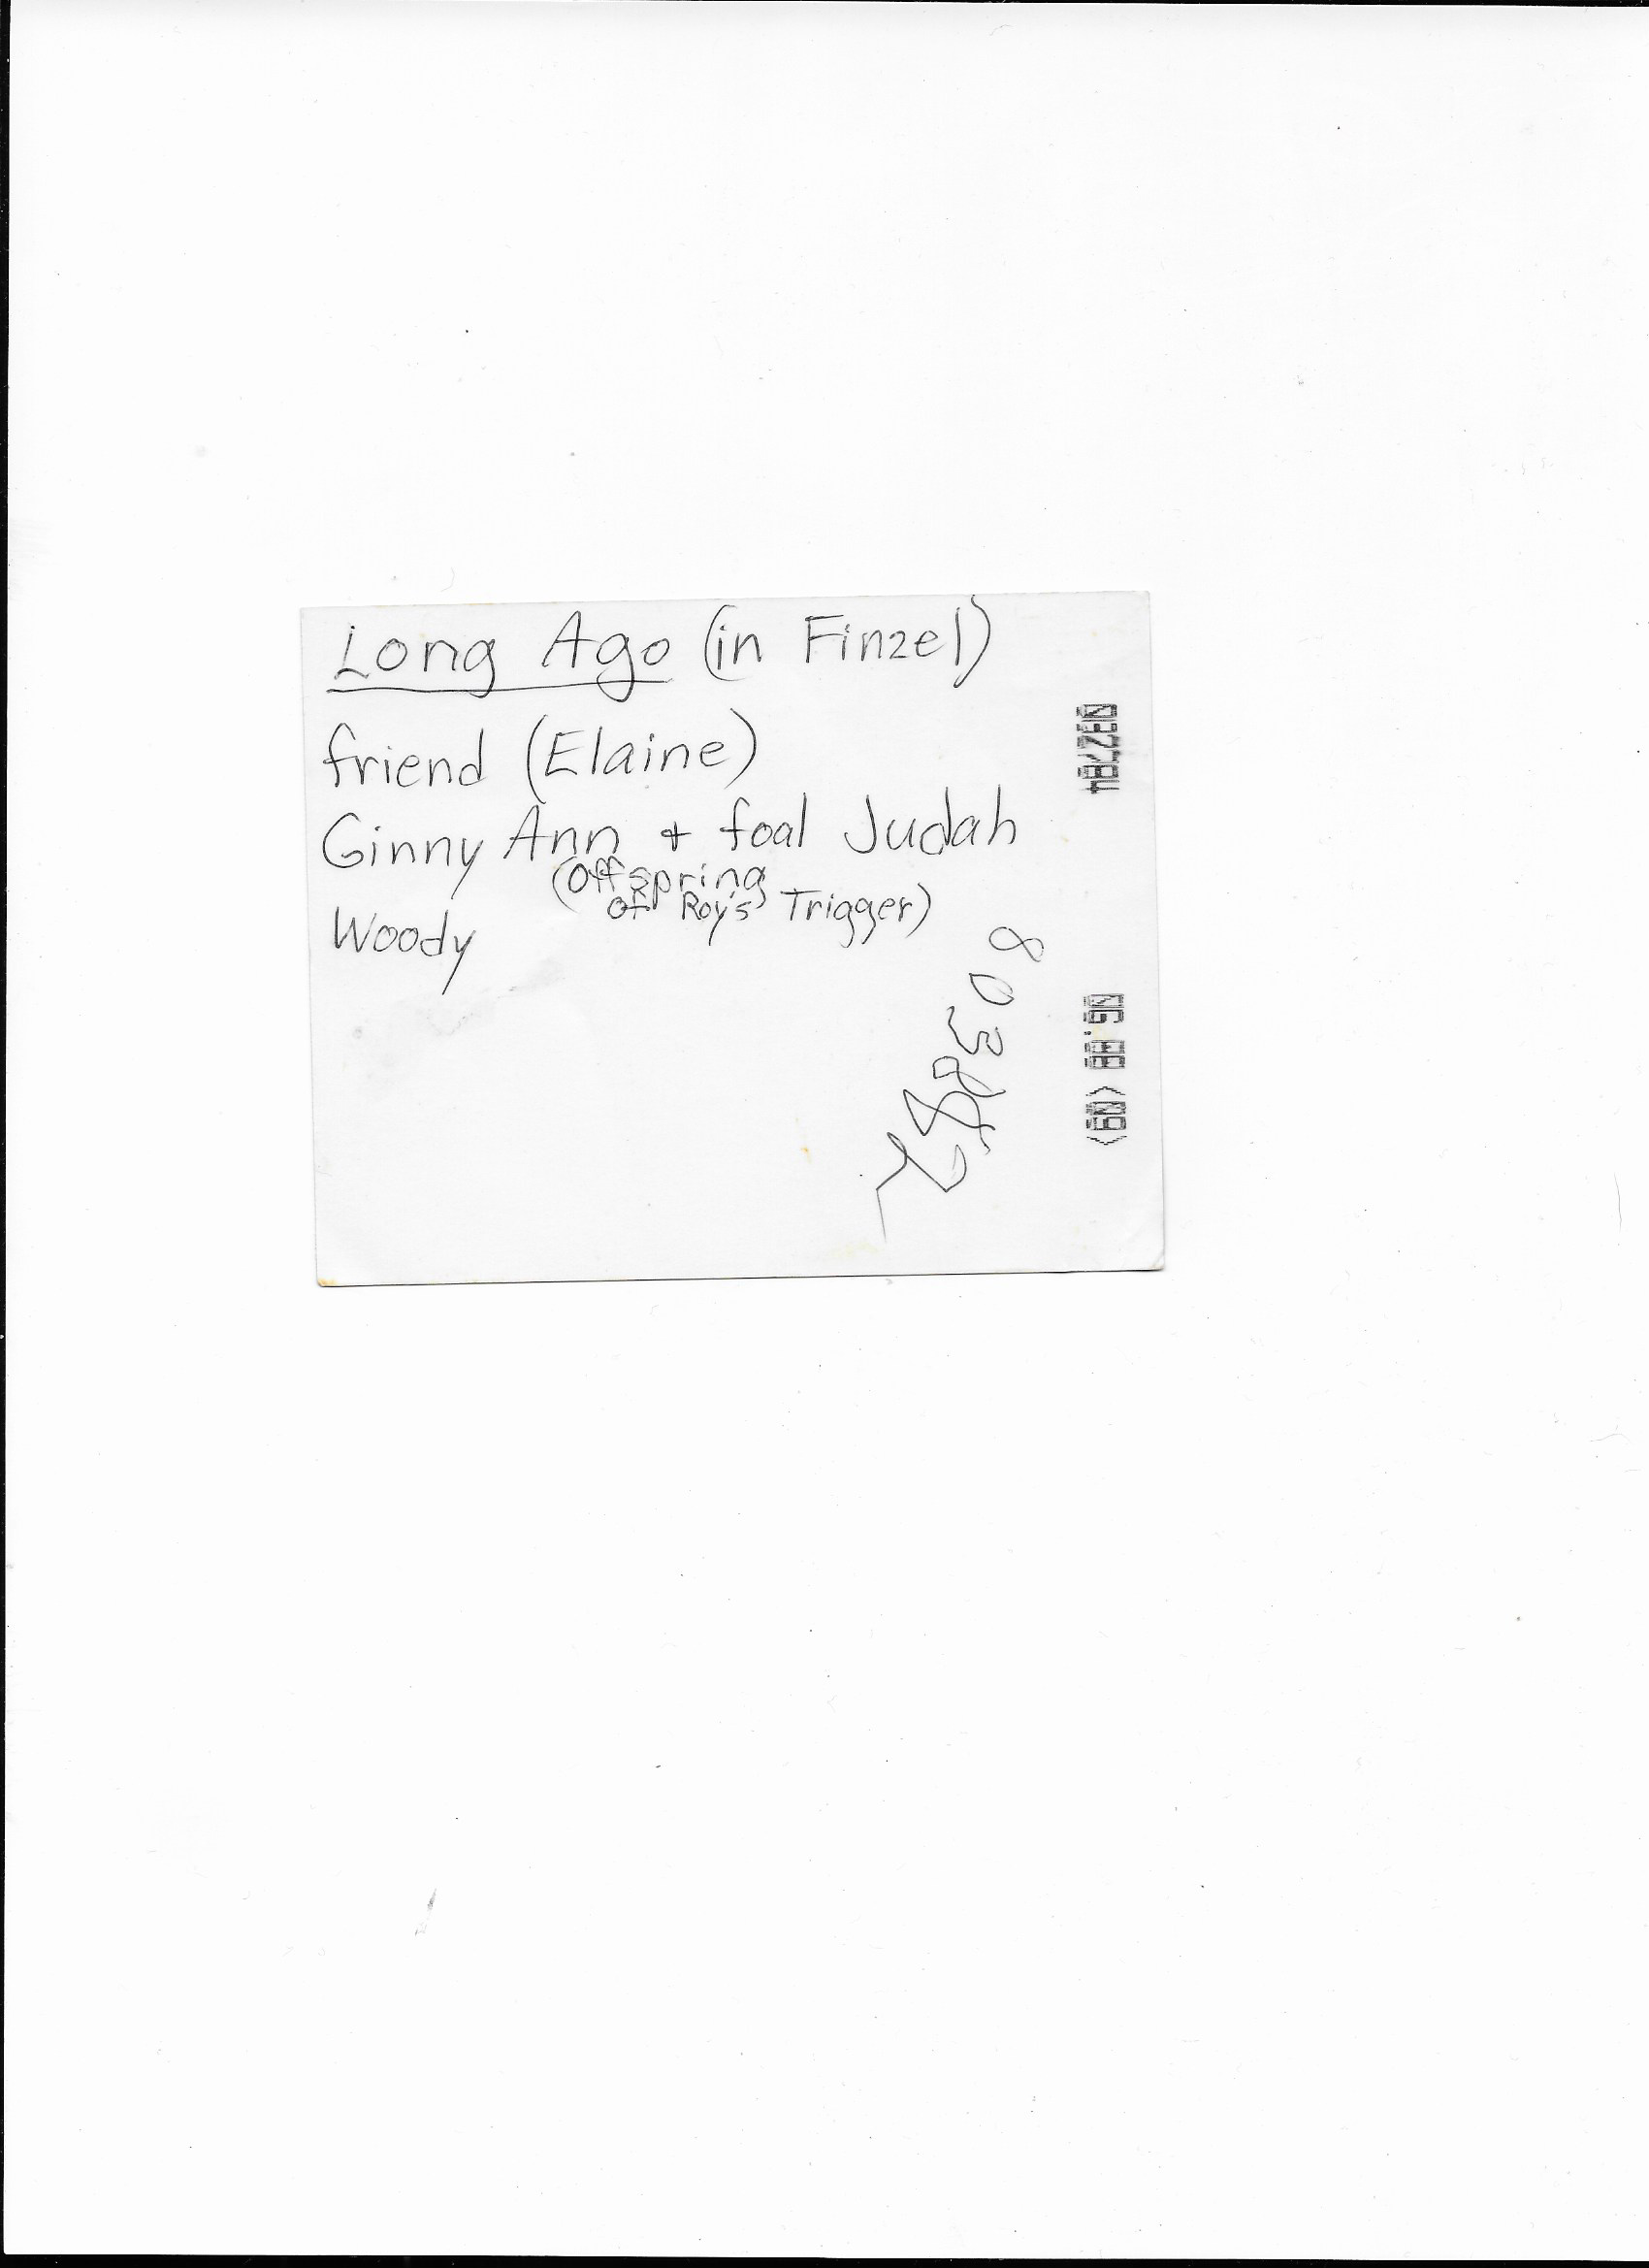 Long Ago (in Finzel)
friend (Elaine)
Ginny Ann + foal Judah
(offspring
of Roy's Trigger)
Woody